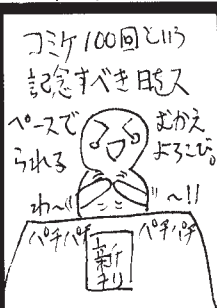 コミケ100回という
記念すべき日をス
ペースで
むかえ
られる
よろこび。
わ〜
〜!!
パチパチ
パチパチ
新刊